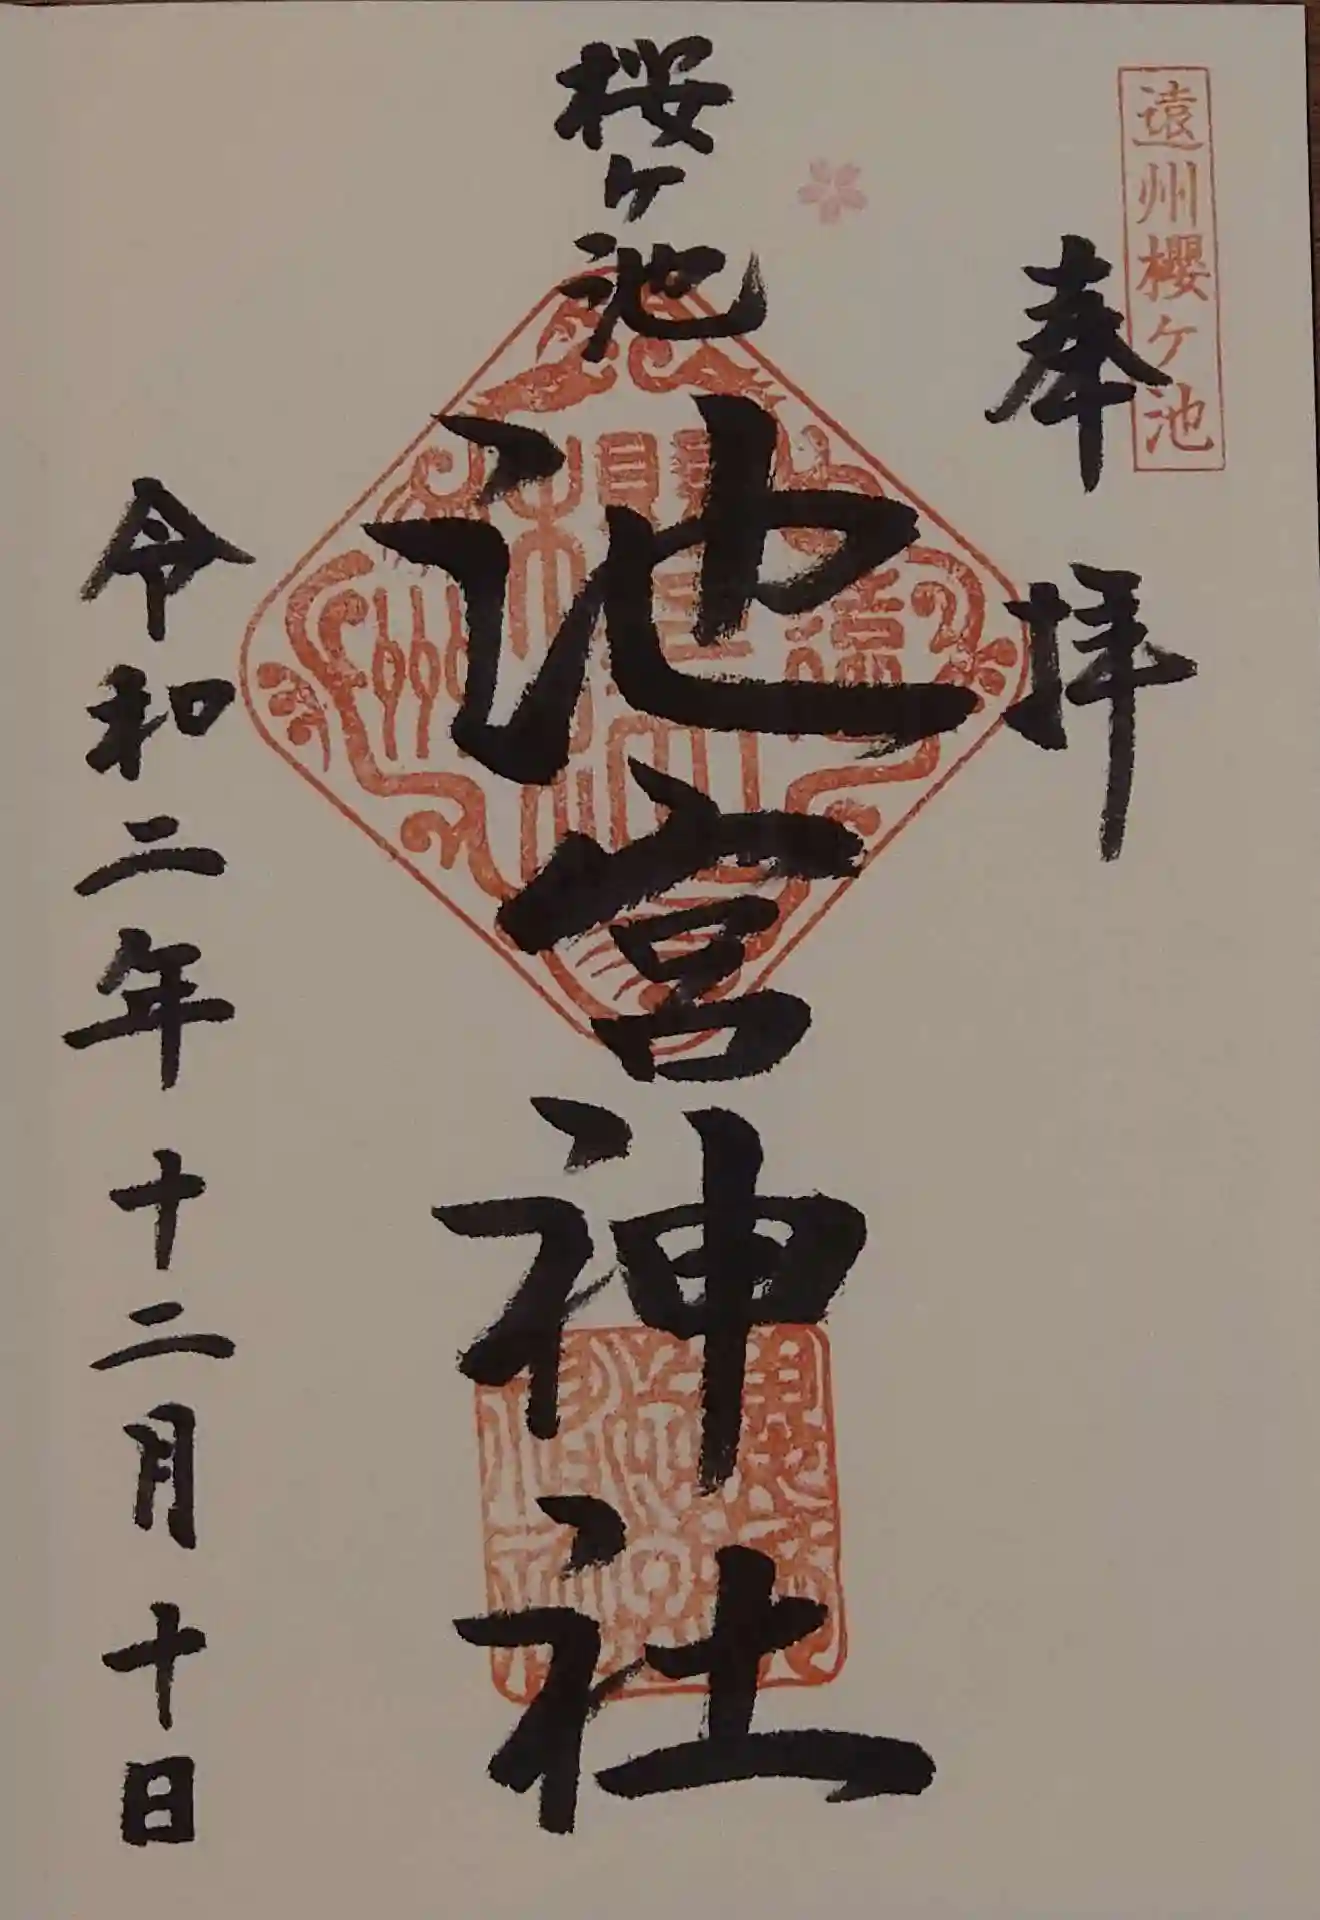 遠州櫻ケ池
奉拝
桜ケ池
池宮神社
令和二年十二月十日